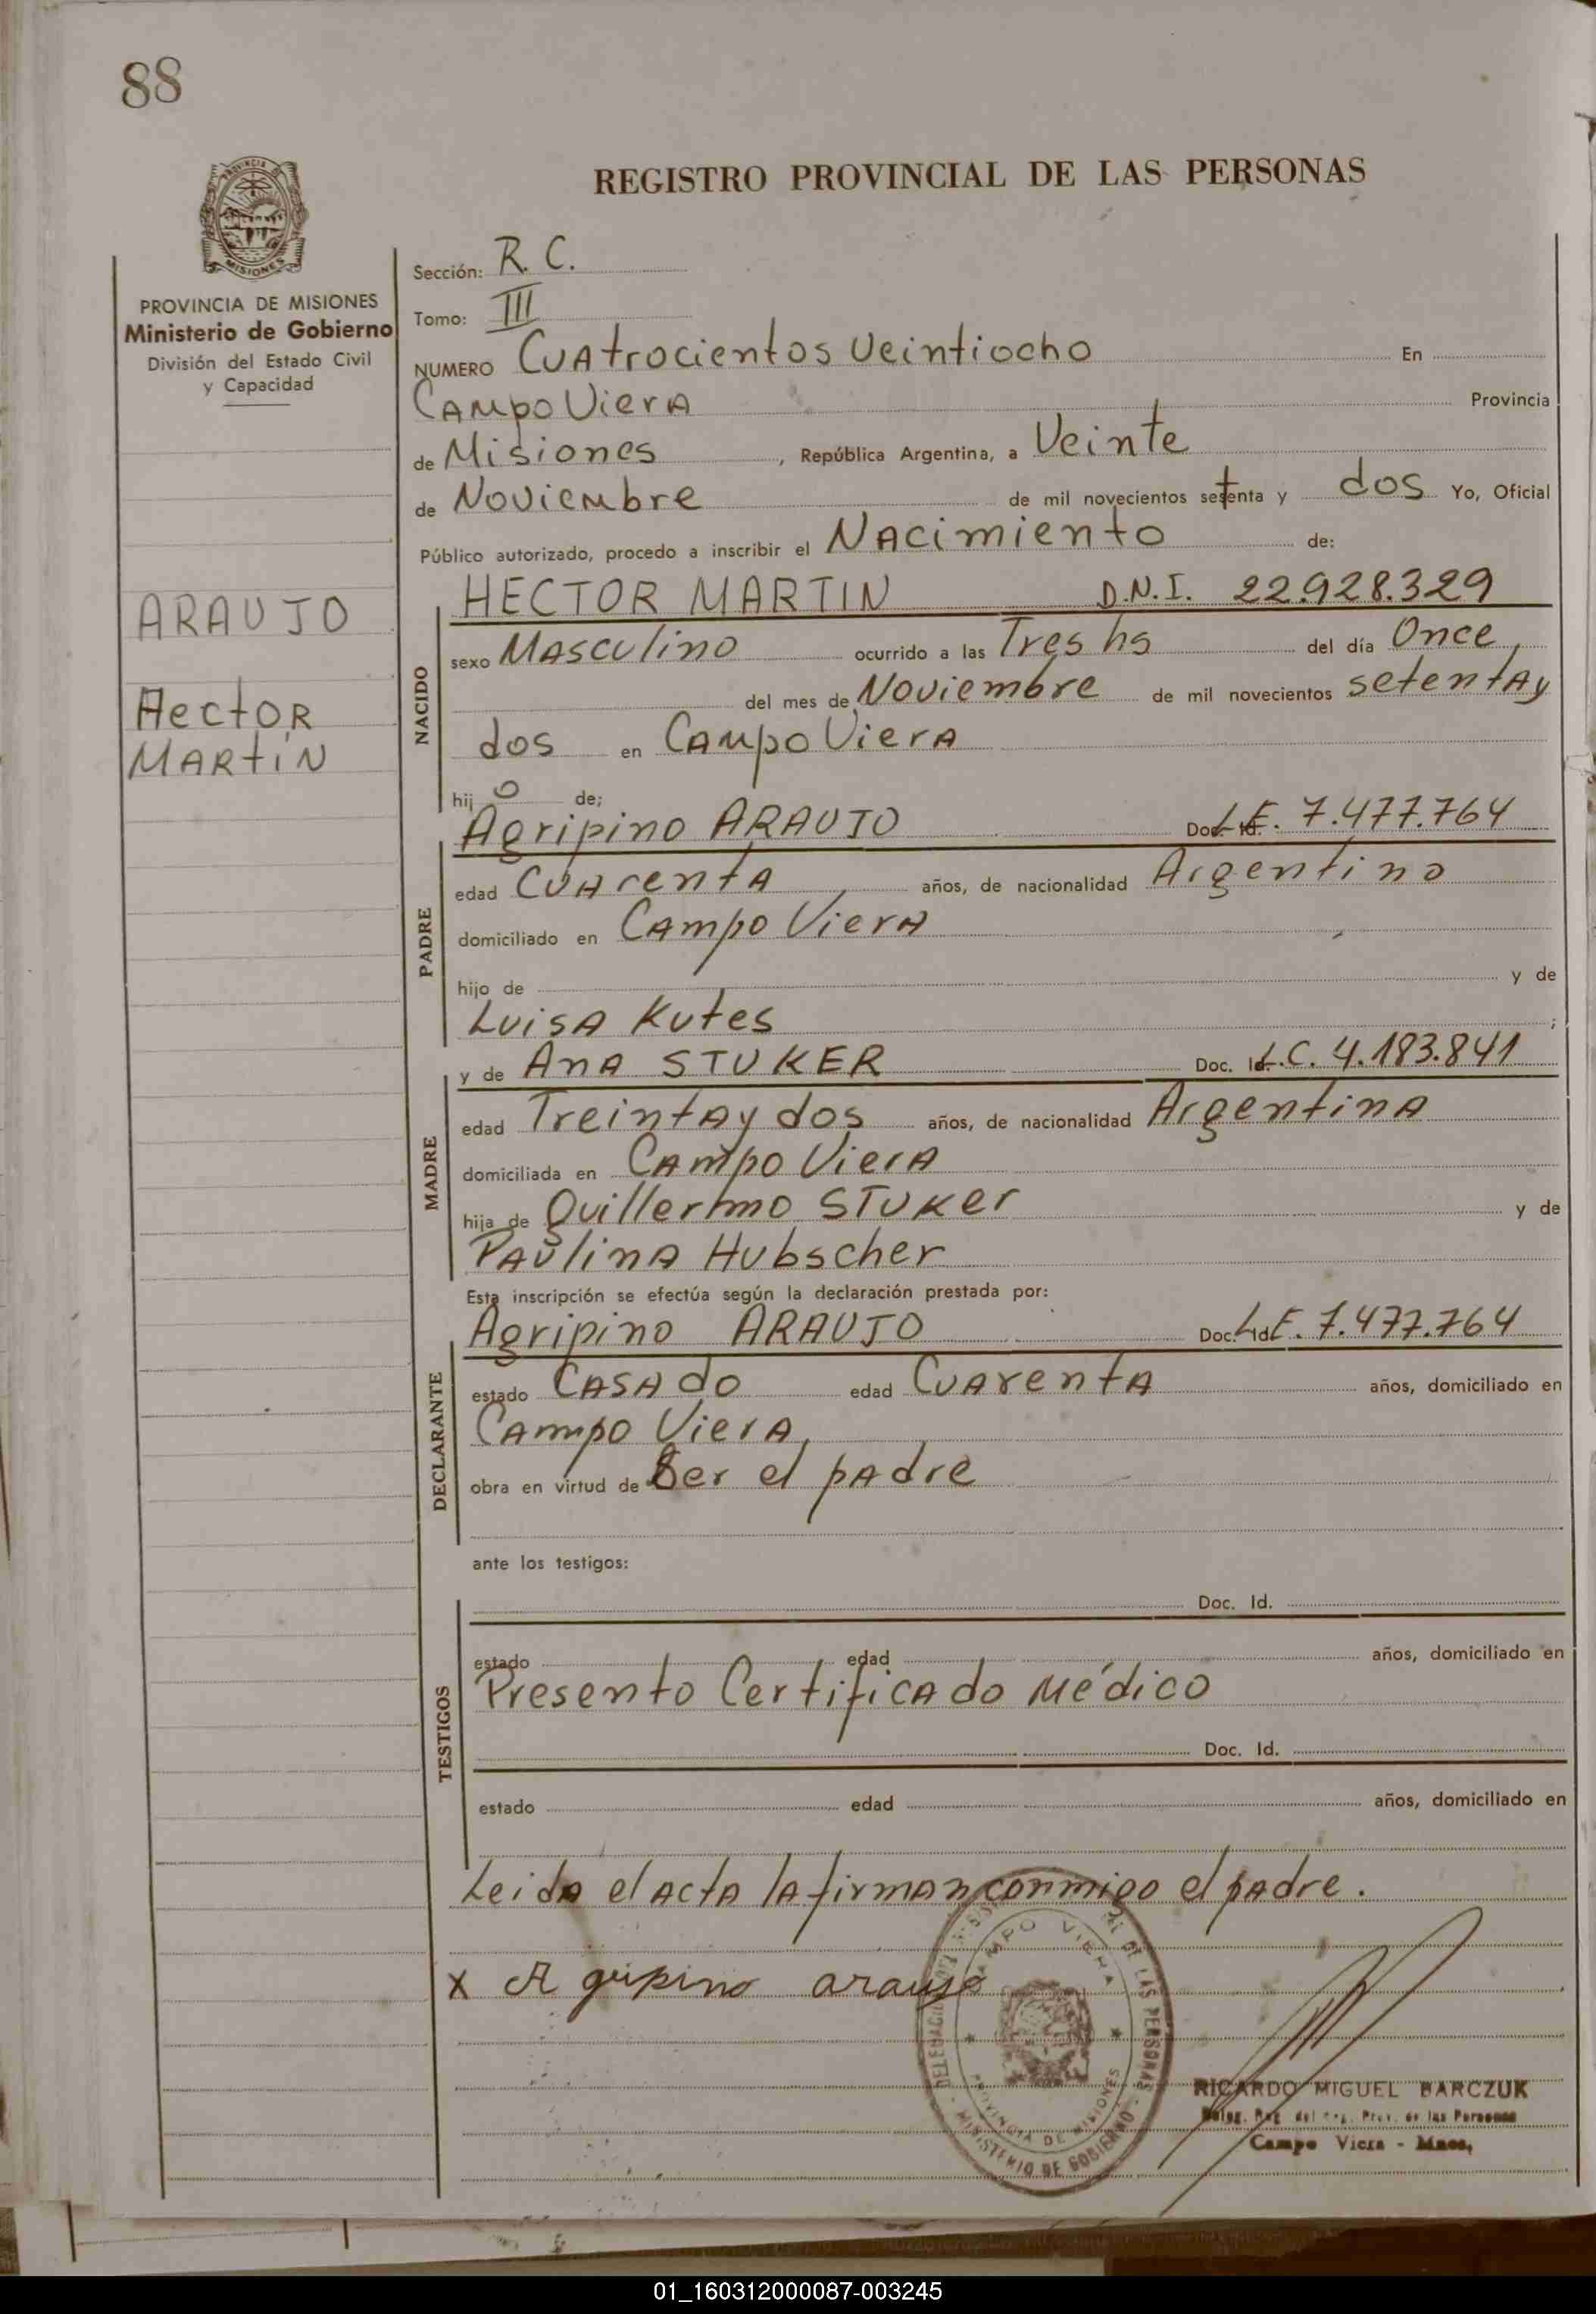 88
REGISTRO PROVINCIAL DE LAS PERSONAS
PROVINCIA DE MISIONES
Ministerio de Gobierno
División del Estado Civil
y Capacidad
ARAUJO
Hector
MARtíN
Sección: R. C.
Tomo: III
NUMERO CUAtrocientos Veintiocho En
CAMpo VierA Provincia
de Misiones, República Argentina, a Veinte
de Noviembre de mil novecientos setenta y dos Yo, Oficial
Público autorizado, procedo a inscribir el NAcimiento de:
HECTOR MARTIN D.N.I. 22.928.329
NACIDO
sexo MAsculino ocurrido a las Tres hs del día Once
del mes de Noviembre de mil novecientos setentAy
dos en CAMpo VierA
hijo de;
Agripino ARAUJO Doc. Id. L.E. 7.477.764
PADRE
edad CUArentA años, de nacionalidad Argentino
domiciliado en CAmpo VierA
hijo de y de
LuisA Kutes ;
y de AnA STUKER Doc. Id. L.C. 4.183.841
MADRE
edad TreintAy dos años, de nacionalidad ArgentinA
domiciliada en CAmpo VierA
hija de Guillermo STUKer y de
PAulinA Hubscher
Esta inscripción se efectúa según la declaración prestada por:
Agripino ARAUJO Doc. Id. L.E. 7.477.764
DECLARANTE
estado CASAdo edad CUArentA años, domiciliado en
CAmpo VierA
obra en virtud de Ser el pAdre
ante los testigos:
Doc. Id.
TESTIGOS
estado edad años, domiciliado en
Presento CertificAdo Médico
Doc. Id.
estado edad años, domiciliado en
LeidA el ActA lA firmAn conmigo el pAdre.
x Agripino araujo
CAMPO VIERA
PROVINCIA DE MISIONES
MINISTERIO DE GOBIERNO
DE LAS PERSONAS
RICARDO MIGUEL BARCZUK
Prov. de las Personas
Campo Viera - Mnes.
01_160312000087-003245